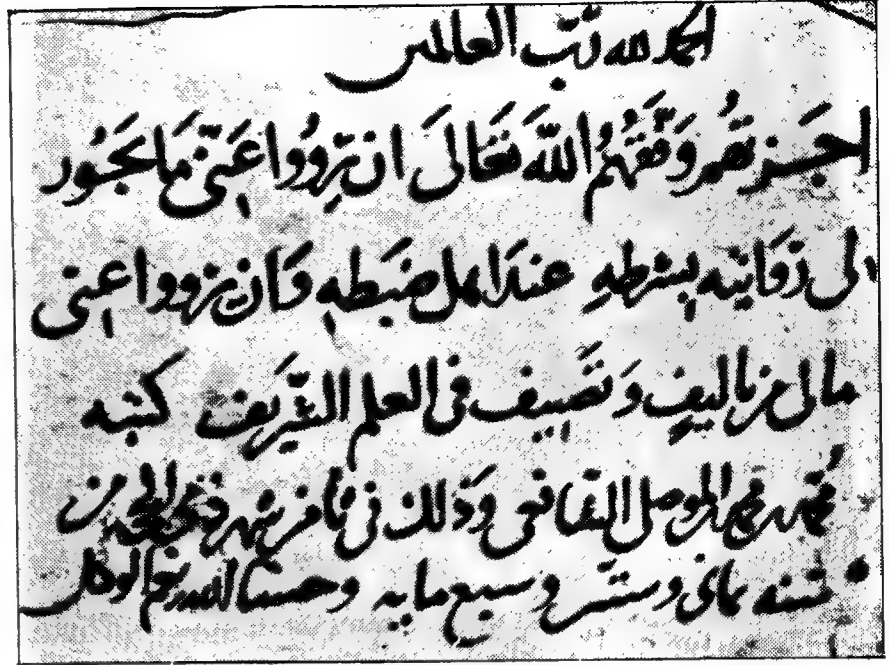 الحمد لله رب العالمين
اجزتهم وفقهم الله تعالى ان يرووا عني ما يجوز
لي روايته بشرطه عند اهل ضبطه وان يرووا عني
مالي من تاليف وتصنيف في العلم الشريف كتبه
محمد محمد الموصلي الشافعي وذلك في ثامن شهر ذي الحجة من
سنه ثمان وستين وسبع مايه وحسبنا الله ونعم الوكيل